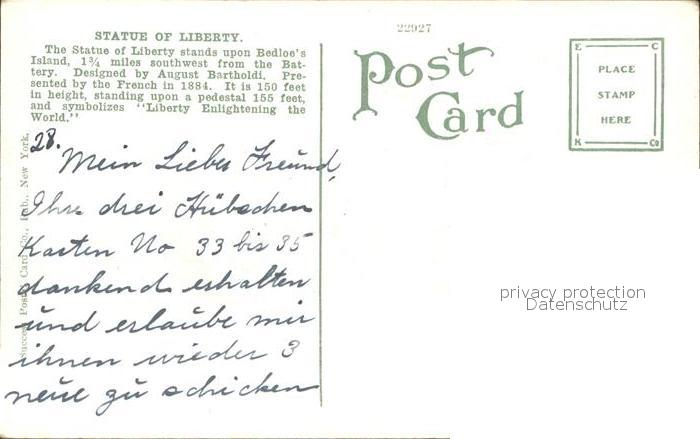 22927
STATUE OF LIBERTY.
The Statue of Liberty stands upon Bedloe's
Island, 1¾ miles southwest from the Bat-
tery. Designed by August Bartholdi. Pre-
sented by the French in 1884. It is 150 feet
in height, standing upon a pedestal 155 feet,
and symbolizes "Liberty Enlightening the
World."
Post
Card
E C
PLACE
STAMP
HERE
K Co
Success Postal Card Co., Pub., New York.
28.
Mein Lieber Freund,
Ihre drei Hübschen
Karten No 33 bis 35
dankend erhalten
und erlaube mir
ihnen wieder 3
neue zu schicken
privacy protection
Datenschutz